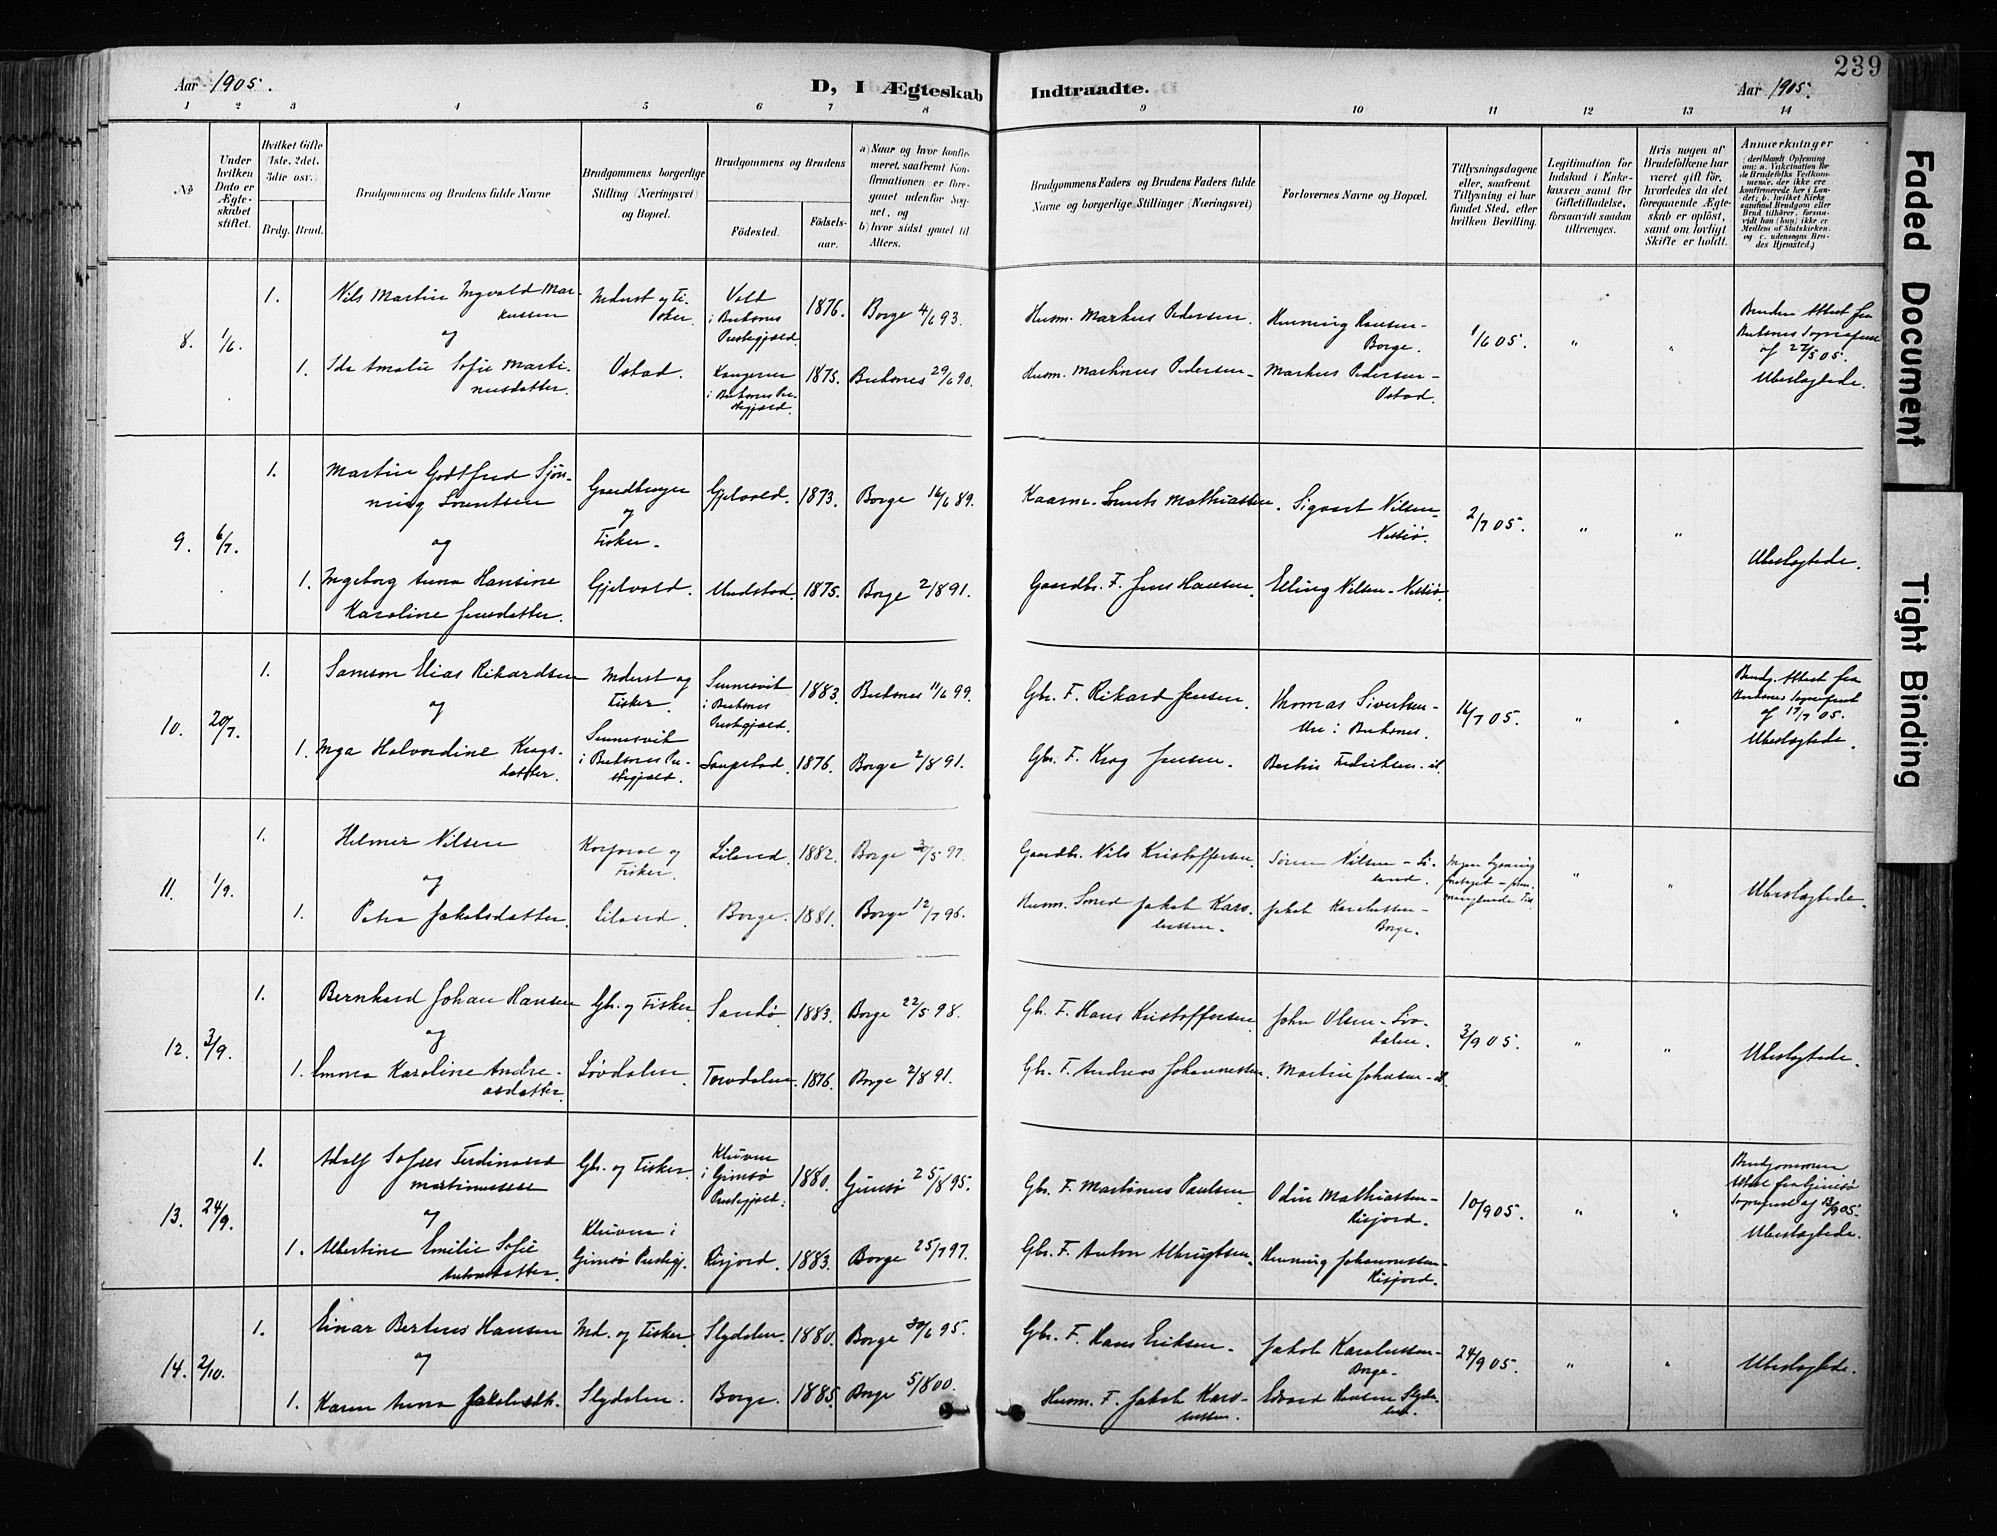 239
Aar 1905.
D, I Ægteskab Indtraadte.
Aar 1905.
1 2 3 4 5 6 7 8 9 10 11 12 13 14
No
Under hvilken Dato er Ægteskabet stiftet.
Hvilket Gifte (1ste, 2det, 3dte osv.)
Brdg. Brud.
Brudgommens og Brudens fulde Navne
Brudgommens borgerlige Stilling (Næringsvei) og Bopæl.
Brudgommens og Brudens
Födested.
Födselsaar.
a) Naar og hvor konfirmeret, saafremt Konfirmationen er foregaaet udenfor Sognet, og
b) hvor sidst gaaet til Alters.
Brudgommens Faders og Brudens Faders fulde Navne og borgerlige Stillinger (Næringsvei)
Forlovernes Navne og Bopæl.
Tillysningsdagene eller, saafremt Tillysning ei har fundet Sted, efter hvilken Bevilling.
Legitimation for Indskud i Enkekassen samt for Giftetilladelse, forsaavidt saadan tiltrænges.
Hvis nogen af Brudefolkene har været gift för, hvorledes da det foregaaende Ægteskab er oplöst, samt om lovligt Skifte er holdt.
Anmerkninger
8. 1/6.
1. Nils Martin Ingvald Markussen
Inderst og Fisker.
Vold i Buksnes Prestegjæld.
1876. Borge 4/6 93.
Husm. Markus Pedersen. Henning Hansen - Borge.
1/6 05. " "
Brudens Attest fra Buksnes Sogneprest af 27/5 05. Ubeslægtede.
og
1. Ida Amalie Sofie Martinusdatter.
Ustad.
i Buksnes Prestegjæld.
1875. Buksnes 29/6 90.
Husm. Martinus Pedersen - Markus Pedersen - Ustad.
9. 6/7.
1. Martin Godtfred Sjönning Lorentsen
Gaardbruger og Fisker.
Gjelvold. 1873. Borge 16/6 89.
Kaarm. Lorents Mathiassen. Sigvart Nilsen - Nessiö.
2/7 05. " "
Ubeslægtede.
og
1. Ingeborg Anna Hansine Karoline Jensdatter.
Gjelvold. Undstad. 1875. Borge 2/8 91.
Gaardbr. F. Jens Hansen. Elling Nilsen - Nessiö.
10. 20/7.
1. Samson Elias Rikardsen
Inderst og Fisker.
Sennesvik i Buksnes Prestegjæld.
1883. Buksnes 11/6 99.
Gbr. F. Rikard Jensen. Thomas Sivertsen - Ure i Buksnes.
16/7 05. " "
Brudg. Attest fra Buksnes Sogneprest af 17/7 05. Ubeslægtede.
og
1. Inga Halvardine Kragsdatter.
Sennesvik i Buksnes Prestegjæld.
Saupstad. 1876. Borge 2/8 91.
Gbr. F. Krag Jensen. Bertin Fedriksen - id.
11. 1/9.
1. Helmer Nilsen
Korporal og Fisker.
Liland. 1882. Borge 30/5 97.
Gaardbr. Nils Kristoffersen. Sören Nilsen - Liland.
Ingen Lysning foretaget - manglende Tid.
" "
Ubeslægtede.
og
1. Petra Jakobsdatter.
Liland. Borge. 1881. Borge 12/7 96.
Husm. Jakob Karolussen. Jakob Karolussen - Borge.
12. 3/9.
1. Bernhard Johan Hansen
Gbr. og Fisker.
Sandö. 1883. Borge 22/5 98.
Gbr. F. Hans Kristoffersen. John Olsen - Lövdalen.
3/9 05. " "
Ubeslægtede.
og
1. Emma Karoline Andreasdatter.
Lövdalen. Torvdalen. 1876. Borge 2/8 91.
Gbr. F. Andreas Johannessen. Martin Johnsen - id.
13. 24/9.
1. Adolf Sofus Ferdinand Martinussen
Gbr. og Fisker.
Kleiven i Gimsö Prestegjæld.
1880. Gimsö 25/8 95.
Gbr. F. Martinus Paulsen. Odin Mathiassen - Risjord.
10/9 05. " "
Brudgommens Attest fra Gimsö Sogneprest af 13/9 05. Ubeslægtede.
og
1. Albertine Emilie Sofie Antonsdatter.
Kleiven i Gimsö Prestegj.
Risjord. 1883. Borge 25/7 97.
Gbr. F. Anton Albrigtsen. Henning Johannessen - Risjord.
14. 2/10.
1. Einar Berteus Hansen
Ind. og Fisker.
Slydalen. 1880. Borge 30/6 95.
Gbr. F. Hans Eriksen. Jakob Karolussen - Borge.
24/9 05. " "
Ubeslægtede.
og
1. Karen Anna Jakobsdtr.
Slydalen. Borge. 1885. Borge 5/8 00.
Husm. F. Jakob Karolussen. Edvard Hansen Slydalen.
Faded Document
Tight Binding